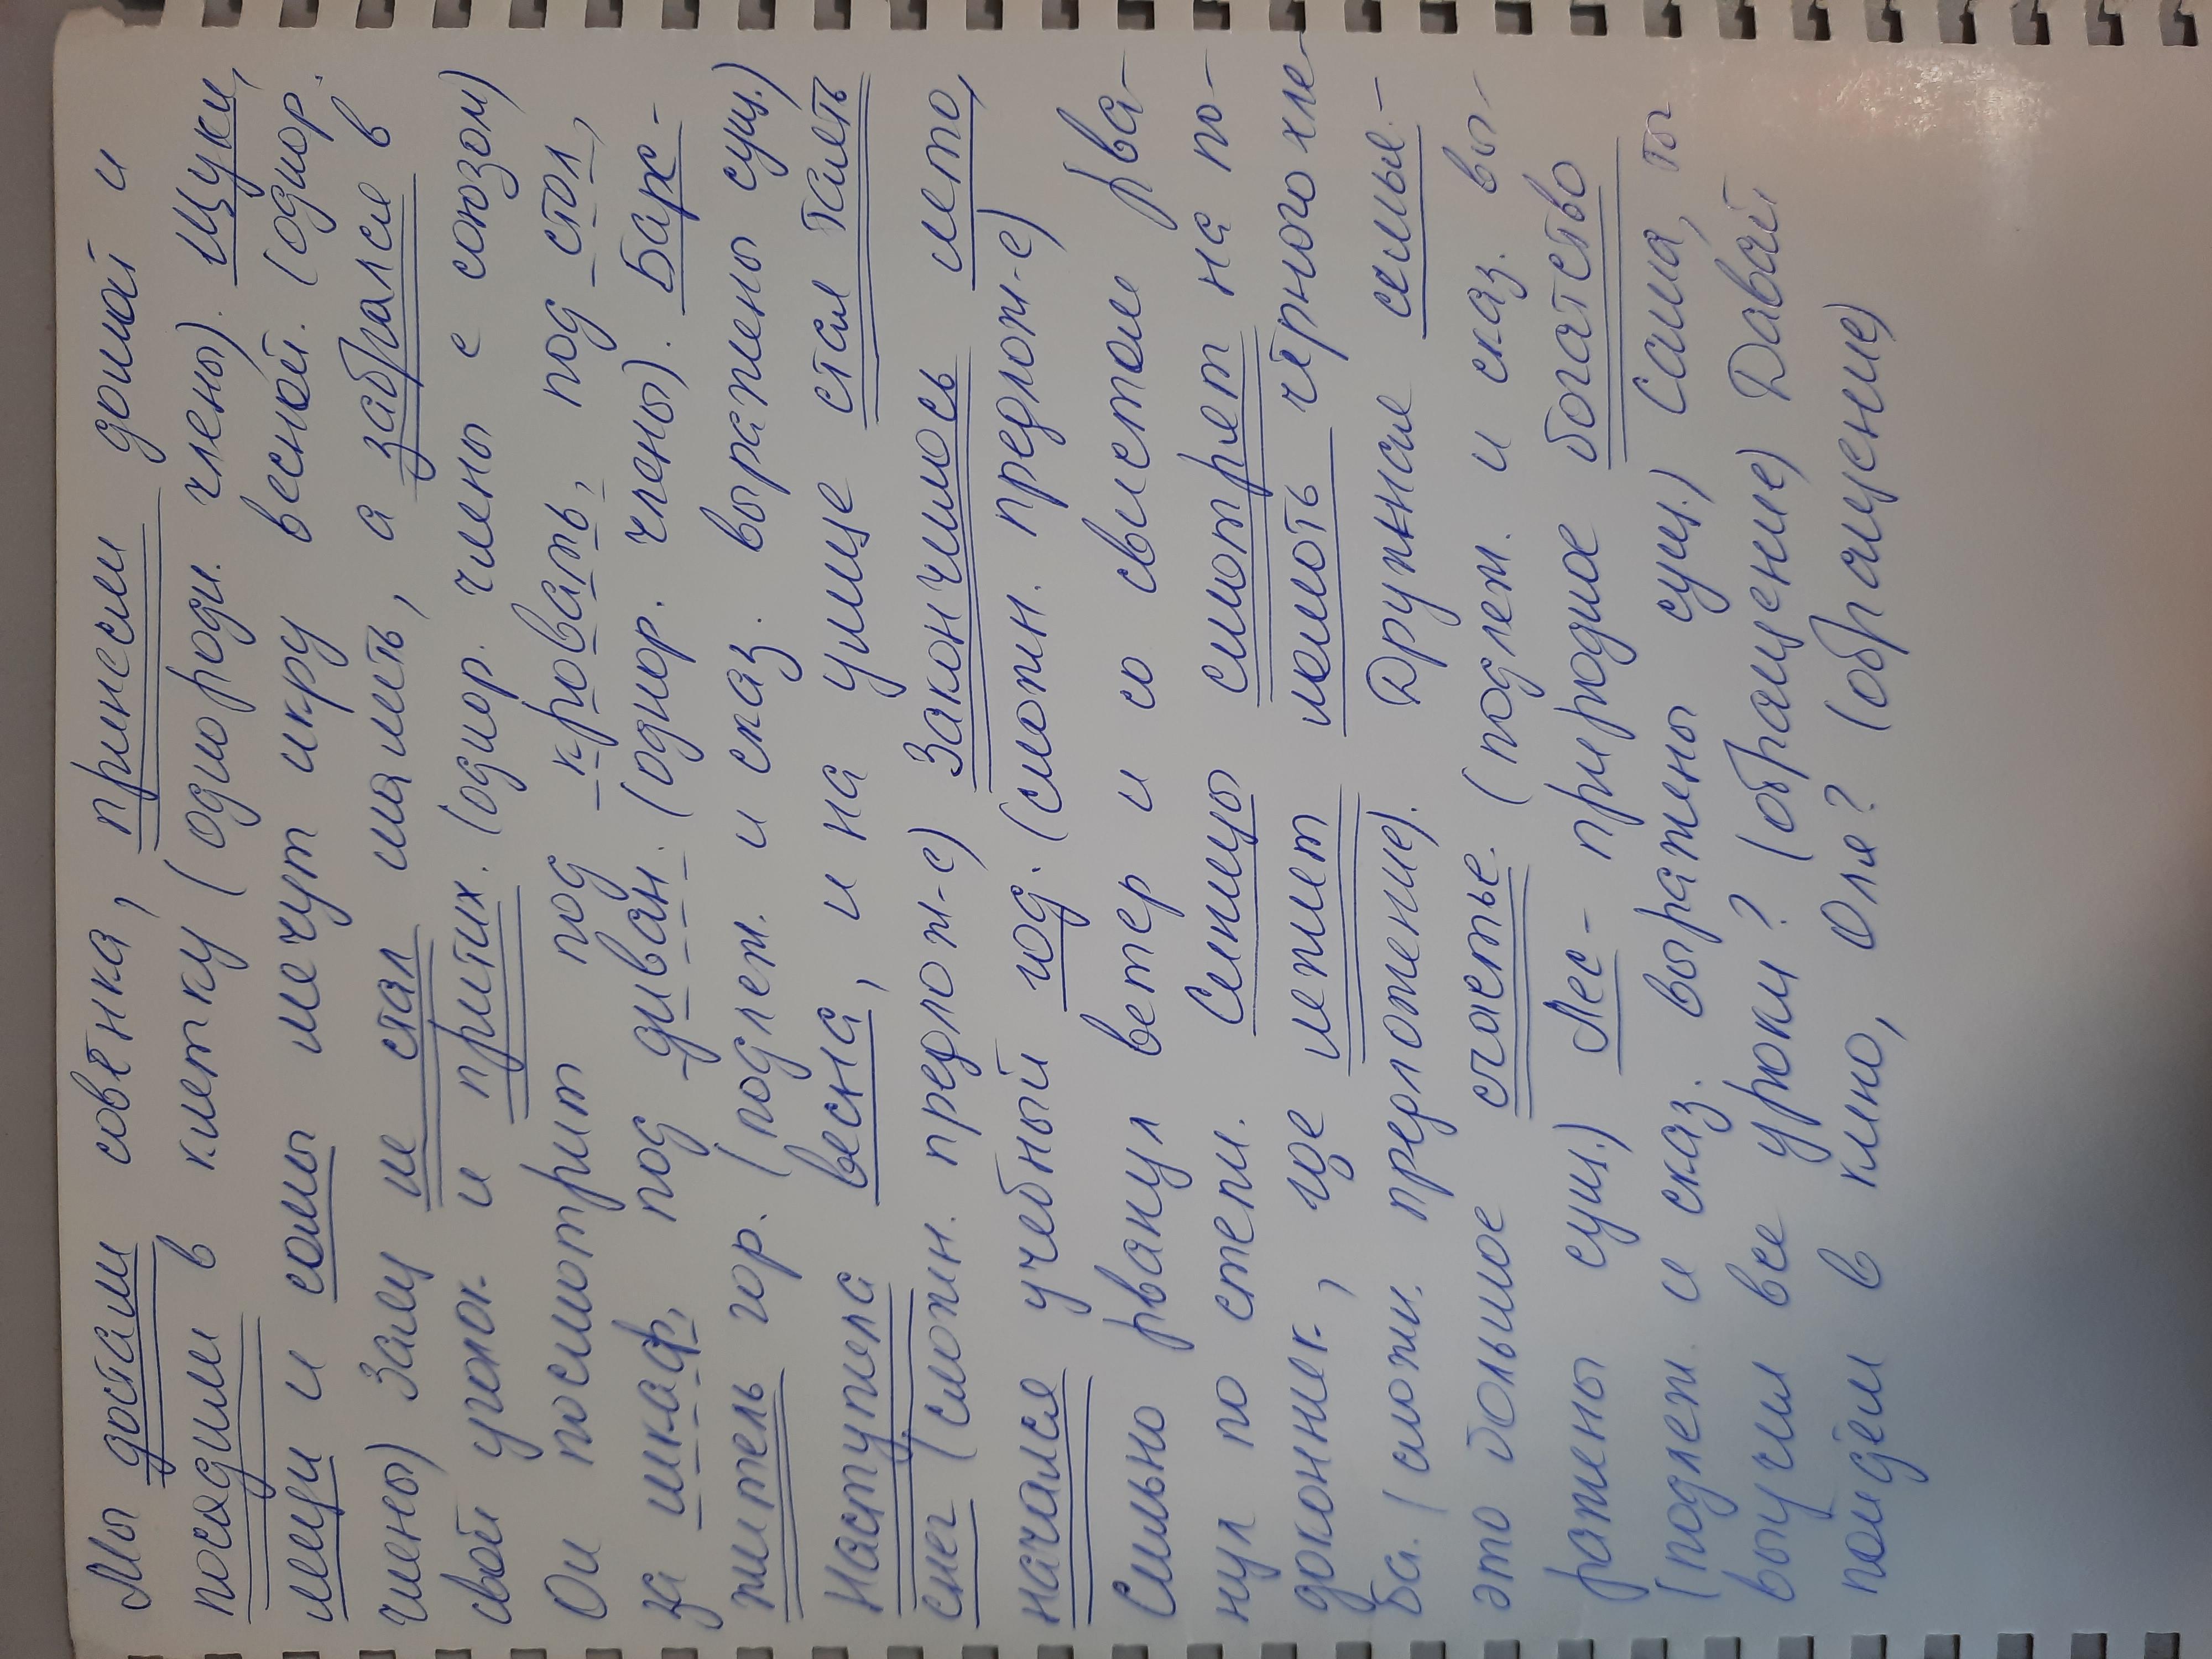 Мы достали совёнка, принесли домой и
посадили в клетку (однородн. члены). Щуки,
лещи и сомы мечут икру весной. (однор.
члены) Заяц не стал шалить, а забрался в
свой уголок и притих. (однор. члены с союзом)
Он посмотрит под кровать, под стол,
за шкаф, под диван. (однор. члены). Барс -
житель гор. (подлеж. и сказ. выражены сущ.)
Наступила весна, и на улице стал таять
снег (сложн. предлож-е) Закончилось лето,
начался учебный год. (сложн. предлож-е)
Сильно рванул ветер и со свистом рва-
нул по степи. Синицы смотрят на по-
доконник, где лежит ломоть чёрного хле-
ба. (сложн. предложение). Дружная семья -
это большое счастье. (подлеж. и сказ. вы-
ражены сущ.) Лес - природное богатство
(подлеж. и сказ. выражены сущ.) Саша, ты
выучил все уроки? (обращение) Давай
пойдём в кино, Оля? (обращение)